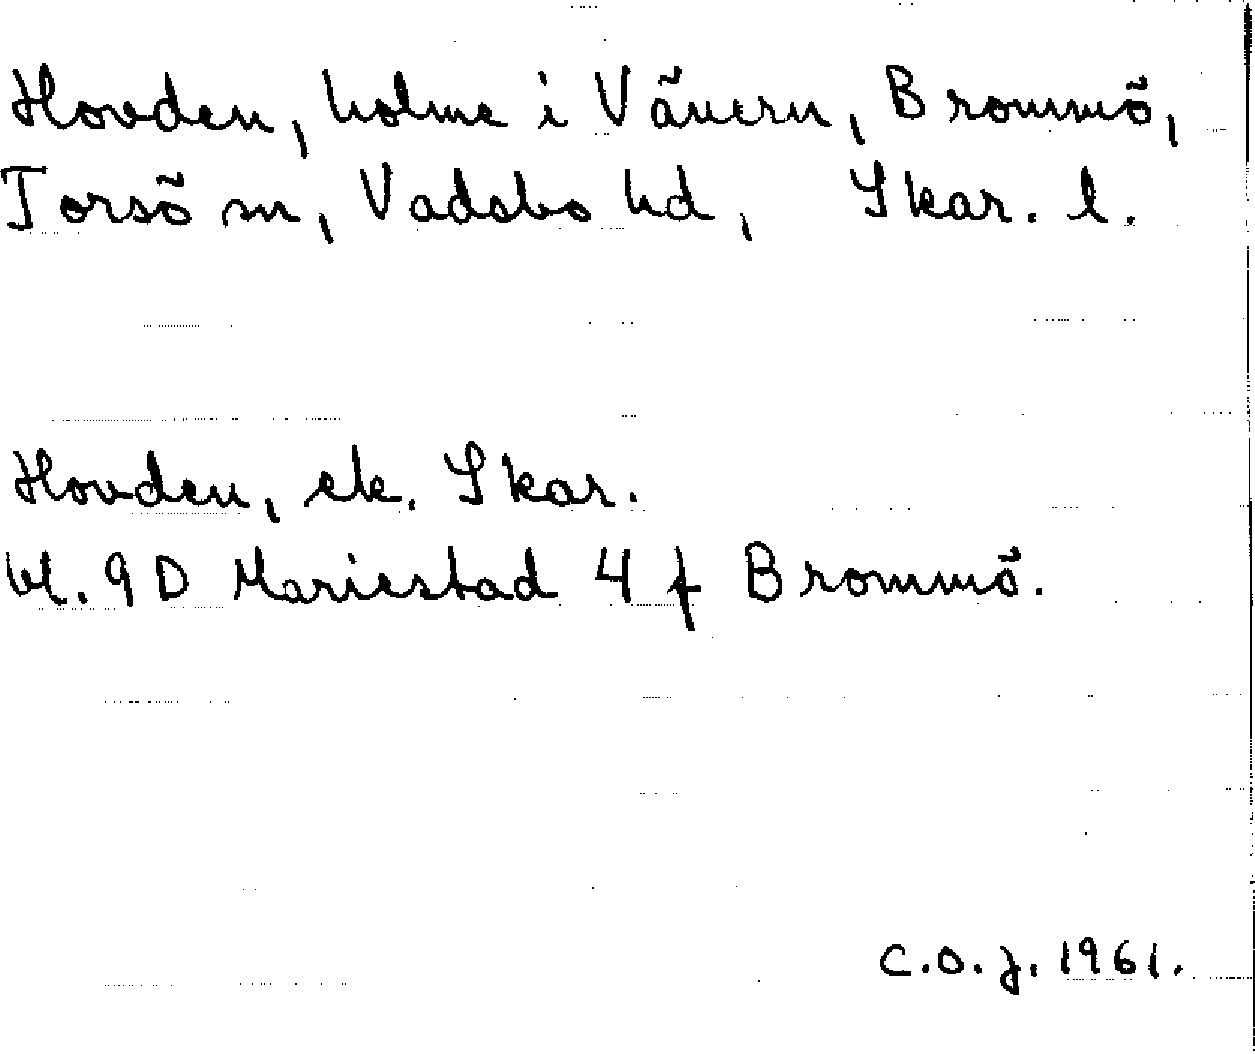 Hovden, holme i Vänern, Brommö,
Torsö sn, Vadsbo hd, Skar. l.
Hovden, ek. Skar.
bl. 9D Mariestad 4 f Brommö.
C.O.J. 1961.